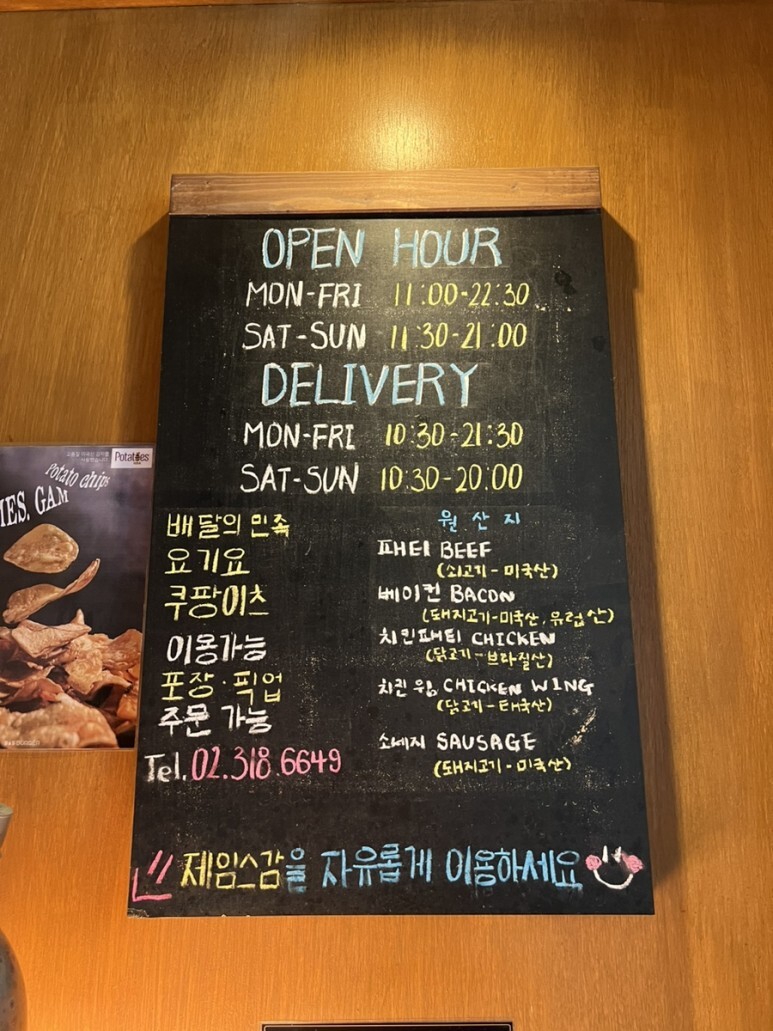 OPEN HOUR
MON-FRI 11:00-22:30
SAT-SUN 11:30-21:00
DELIVERY
MON-FRI 10:30-21:30
SAT-SUN 10:30-20:00
배달의 민족
요기요
쿠팡이츠
이용가능
포장·픽업
주문 가능
Tel. 02.318.6649
원산지
패티 BEEF
(쇠고기-미국산)
베이컨 BACON
(돼지고기-미국산, 유럽산)
치킨패티 CHICKEN
(닭고기-브라질산)
치킨 윙 CHICKEN WING
(닭고기-태국산)
소세지 SAUSAGE
(돼지고기-미국산)
제임스감을 자유롭게 이용하세요
Potatoes
Potato chips
MES. GAM